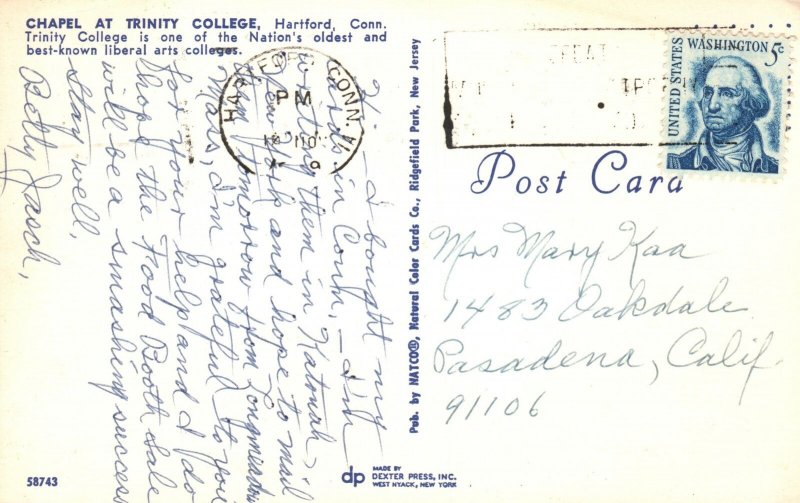 CHAPEL AT TRINITY COLLEGE, Hartford, Conn.
Trinity College is one of the Nation's oldest and
best-known liberal arts colleges.
Hi — I bought my
cards in Conn. — I'm
writing them in Katonah,
New York and hope to mail
them tomorrow from Longmeadow
Mass, I'm grateful to you
for your help and I do
hope the Food Booth Sale
will be a smashing success
Stay well,
Betty Jasch,
58743
Pub. by NATCO®, Natural Color Cards Co., Ridgefield Park, New Jersey
dp MADE BY
DEXTER PRESS, INC.
WEST NYACK, NEW YORK
HARTFORD CONN.
PM
UNITED STATES
WASHINGTON 5c
Post Card
Mrs Mary Kaa
1483 Oakdale
Pasadena, Calif
91106